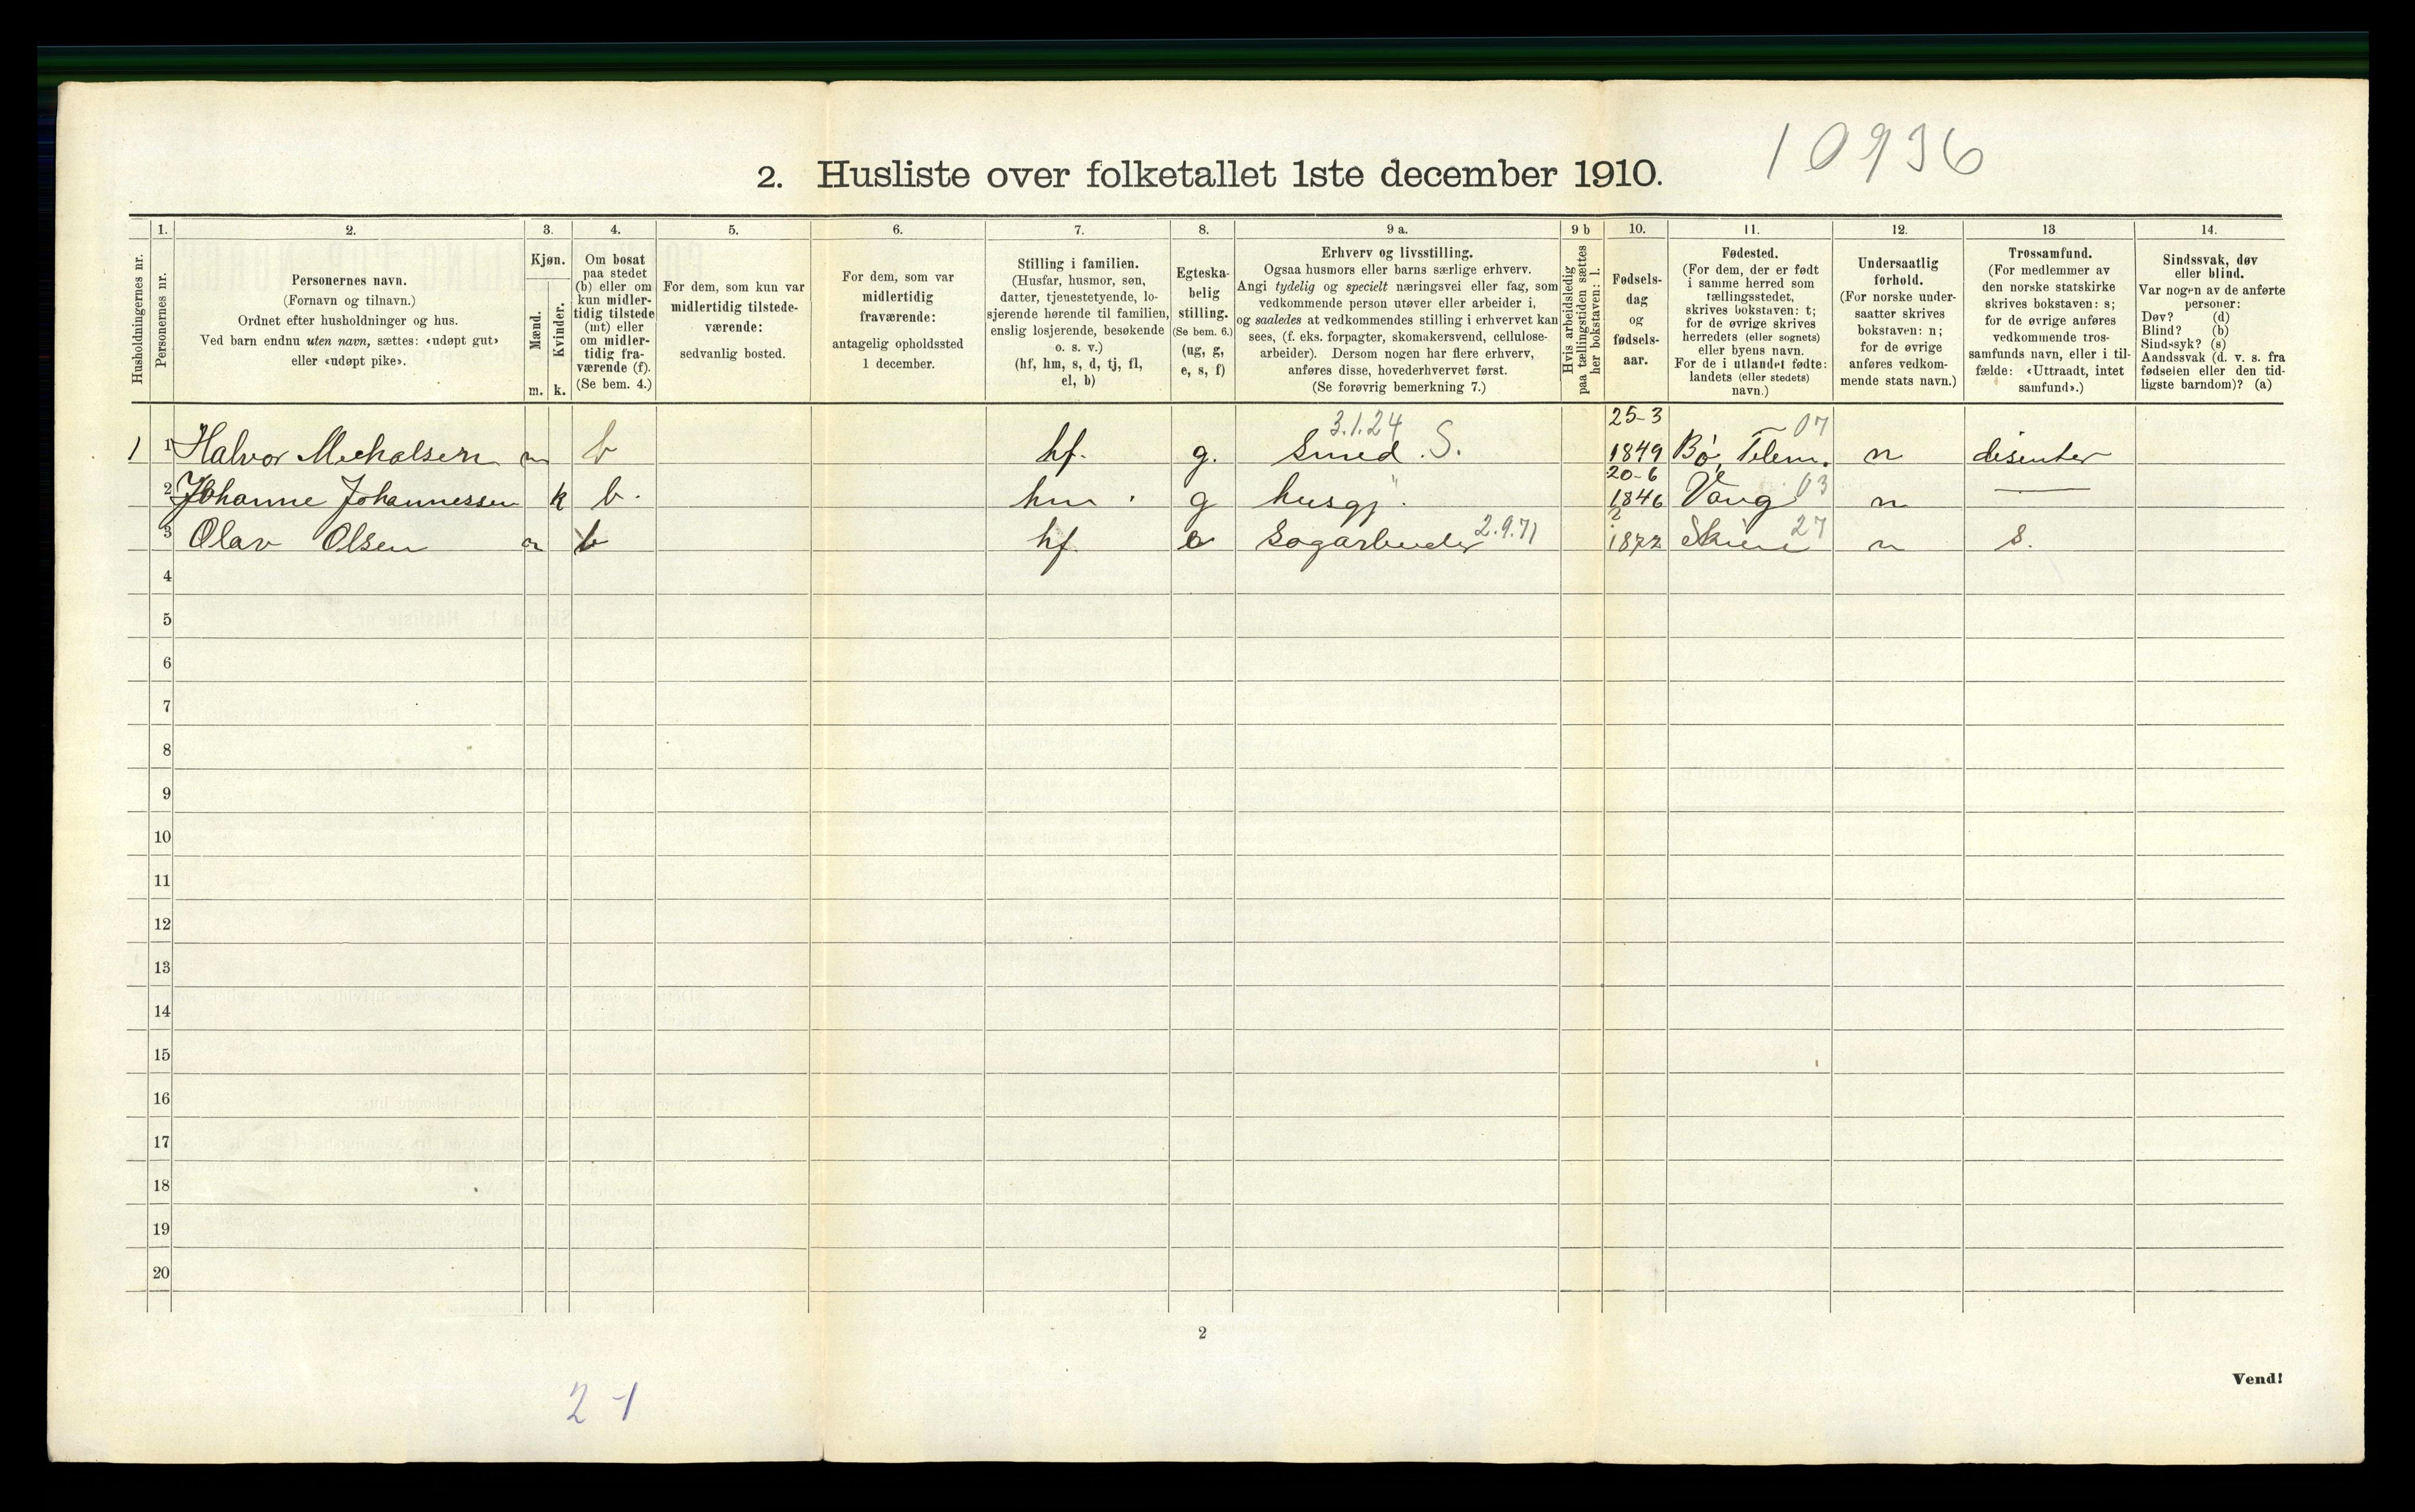 10936
2. Husliste over folketallet 1ste december 1910.
Husholdningernes nr.
1.
Personernes nr.
2.
Personernes navn.
(Fornavn og tilnavn.)
Ordnet efter husholdninger og hus.
Ved barn endnu uten navn, sættes: «udøpt gut»
eller «udøpt pike».
3.
Kjøn.
Mænd.
Kvinder.
m. k.
4.
Om bosat
paa stedet
(b) eller om
kun midler-
tidig tilstede
(mt) eller
om midler-
tidig fra-
værende (f).
(Se bem. 4.)
5.
For dem, som kun var
midlertidig tilstede-
værende:
sedvanlig bosted.
6.
For dem, som var
midlertidig
fraværende:
antagelig opholdssted
1 december.
7.
Stilling i familien.
(Husfar, husmor, søn,
datter, tjenestetyende, lo-
sjerende hørende til familien,
enslig losjerende, besøkende
o. s. v.)
(hf, hm, s, d, tj, fl,
el, b)
8.
Egteska-
belig
stilling.
(Se bem. 6.)
(ug, g,
e, s, f)
9 a.
Erhverv og livsstilling.
Ogsaa husmors eller barns særlige erhverv.
Angi tydelig og specielt næringsvei eller fag, som
vedkommende person utøver eller arbeider i,
og saaledes at vedkommendes stilling i erhvervet kan
sees, (f. eks. forpagter, skomakersvend, cellulose-
arbeider). Dersom nogen har flere erhverv,
anføres disse, hovederhvervet først.
(Se forøvrig bemerkning 7.)
9 b
Hvis arbeidsledig
paa tællingstiden sættes
her bokstaven: l.
10.
Fødsels-
dag
og
fødsels-
aar.
11.
Fødested.
(For dem, der er født
i samme herred som
tællingsstedet,
skrives bokstaven: t;
for de øvrige skrives
herredets (eller sognets)
eller byens navn.
For de i utlandet fødte:
landets (eller stedets)
navn.)
12.
Undersaatlig
forhold.
(For norske under-
saatter skrives
bokstaven: n;
for de øvrige
anføres vedkom-
mende stats navn.)
13
Trossamfund.
(For medlemmer av
den norske statskirke
skrives bokstaven: s;
for de øvrige anføres
vedkommende tros-
samfunds navn, eller i til-
fælde: «Uttraadt, intet
samfund».)
14.
Sindssvak, døv
eller blind.
Var nogen av de anførte
personer:
Døv? (d)
Blind? (b)
Sindssyk? (s)
Aandssvak (d. v. s. fra
fødselen eller den tid-
ligste barndom)? (a)
3.1.24 25-3 07
1 1 Halvor Michalsen m b hf. g. Smed. S. 1849 Bø, Telem. n disenter
20-6 03
2 Johanne Johannessen k b. hm. g husgj. 1846 Vang n —
2.9.71 27
3 Olav Olsen m b hf. e Sagarbeider 1872 Skien n s.
4
5
6
7
8
9
10
11
12
13
14
15
16
17
18
19
20
2
Vend!
2-1